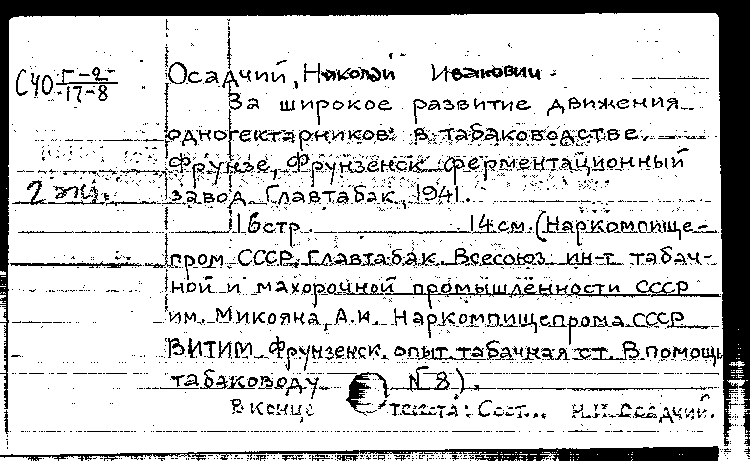 СЧО Г-2
17-8
Осадчий, Николай Иванович.
За широкое развитие движения
одногектарников в табаководстве.
Фрунзе, Фрунзенск. ферментационный
2 экз.
завод Главтабак, 1941.
16стр. 14см. (Наркомпище-
пром СССР. Главтабак. Всесоюз. ин-т табач-
ной и махорочной промышленности СССР
им. Микояна, А.И. Наркомпищепрома СССР
ВИТИМ. Фрунзенск. опыт. табачная ст. В помощь
табаководу. N 8).
В конце текста: Сост... Н.И. Осадчий.